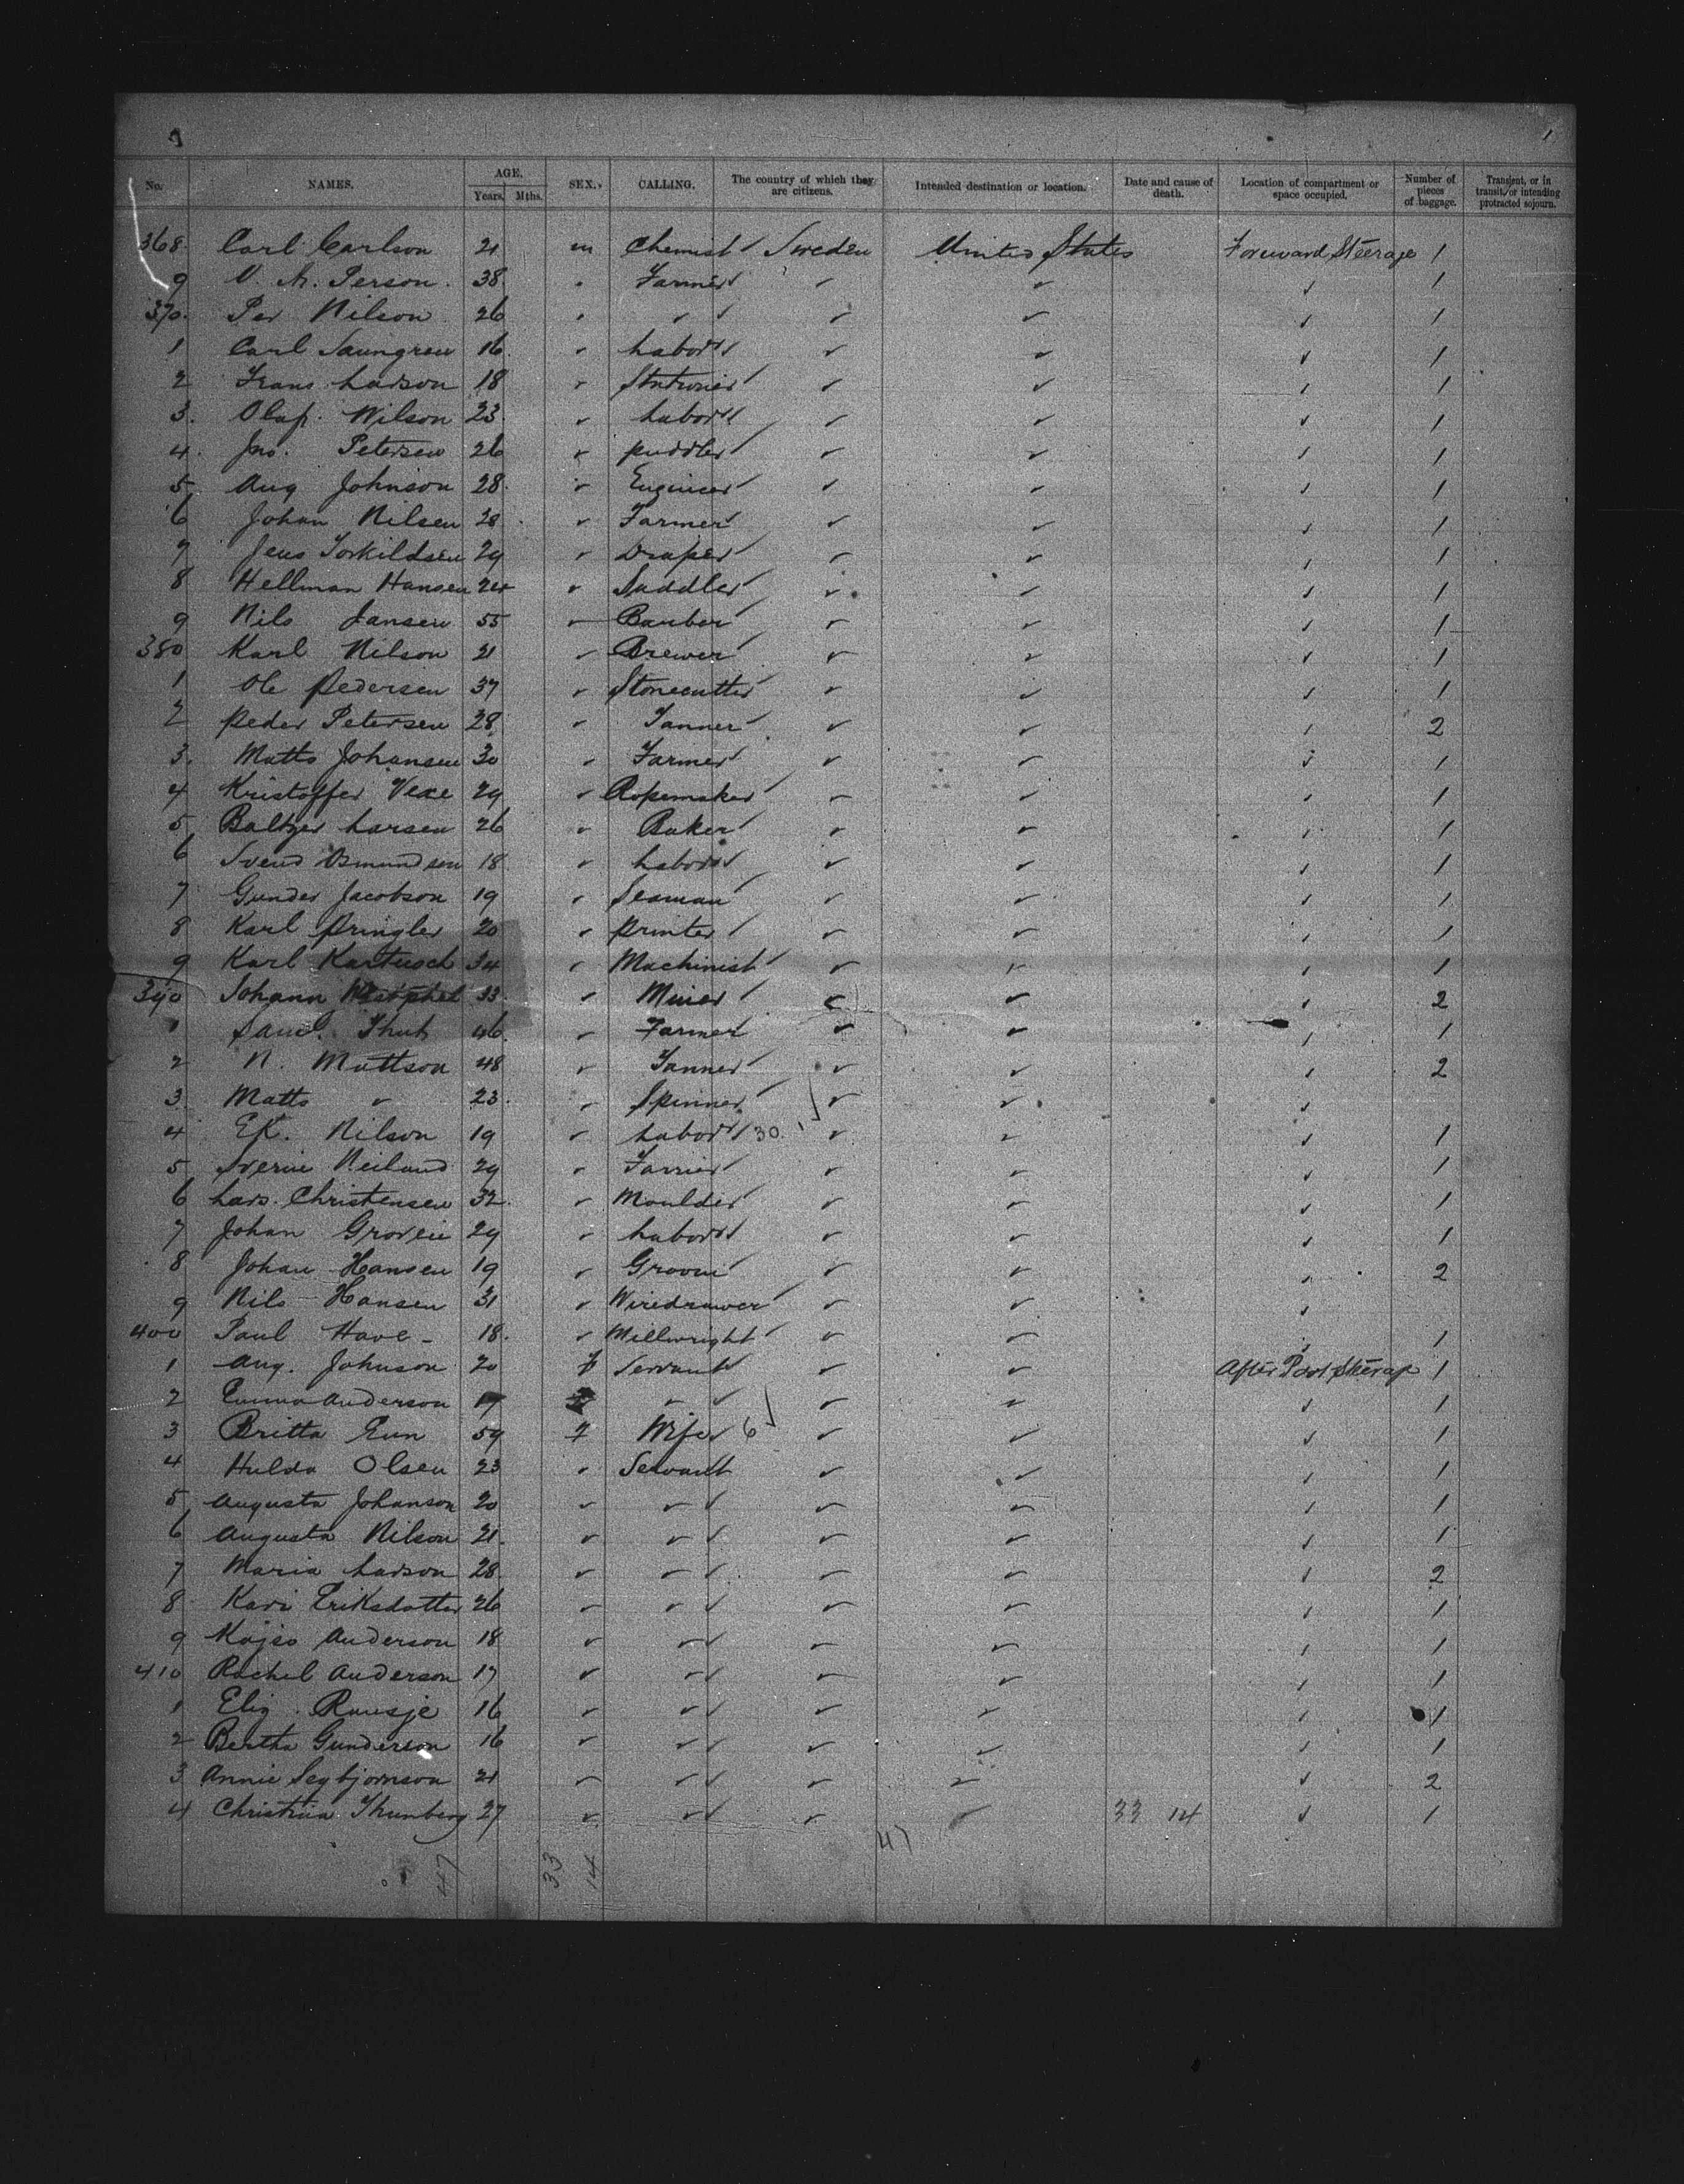 No. NAMES. AGE. Years. Mths. SEX. CALLING. The country of which they are citizens. Intended destination or location. Date and cause of death. Location of compartment or space occupied. Number of pieces of baggage. Transient, or in transit, or intending protracted sojourn.
368 Carl Carlson 21 m Chemist Sweden United States Forward Steerage 1
9 Person 38 Farmer 1
370 Per Nilson 26 1
1 Carl 16 Labor 1
2 Frans Larson 18 1
3 Olaf Wilson 23 Labor 1
4 Jno. Petersen 26 puddler 1
5 Aug Johnson 28 Engineer 1
6 Johan Nilsen 28 Farmer 1
7 Jens Torkildsen 29 Draper 1
8 Hellman Hansen 24 Saddler 1
9 Nils Jansen 55 Barber 1
380 Karl Nilson 21 Brewer 1
1 Ole Pedersen 37 Stonecutter 1
2 Peder Petersen 28 Tanner 2
3 Matts Johansen 30 Farmer 1
4 Kristoffer Vexe 29 Ropemaker 1
5 Baltzer Larsen 26 Baker 1
6 Svend Osmundsen 18 Labor 1
7 Gunder Jacobson 19 Seaman 1
8 Karl Pringler 20 Printer 1
9 Karl Kartusch 34 Machinist 1
390 Johann 33 Miner 2
1 Saml. Thut 46 Farmer 1
2 N. Mattson 48 Tanner 2
3 Matts 23 Spinner
4 Nilson 19 Labor 30 1
5 Neiland 29 Farrier 1
6 Lars. Christensen 32 Moulder 1
7 Johan 29 Labor 1
8 Johan Hansen 19 Groom 2
9 Nils Hansen 31 Wiredrawer
400 Paul Have 18 Millwright 1
1 Aug. Johnson 20 f Servant After Part Steerage 1
2 Emma Anderson 17 1
3 Britta Eun 59 f Wife 6 1
4 Hulda Olsen 23 Servant 1
5 Augusta Johanson 20 1
6 Augusta Nilson 21 1
7 Maria Larson 28 2
8 Kari Eriksdatter 26 1
9 Kajsa Anderson 18 1
410 Rachel Anderson 17 1
1 Eliz. 16 1
2 Bertha Gunderson 16 1
3 Annie Segbjornson 21 2
4 Christina Thunberg 27 33 14 1
47 33 14 47